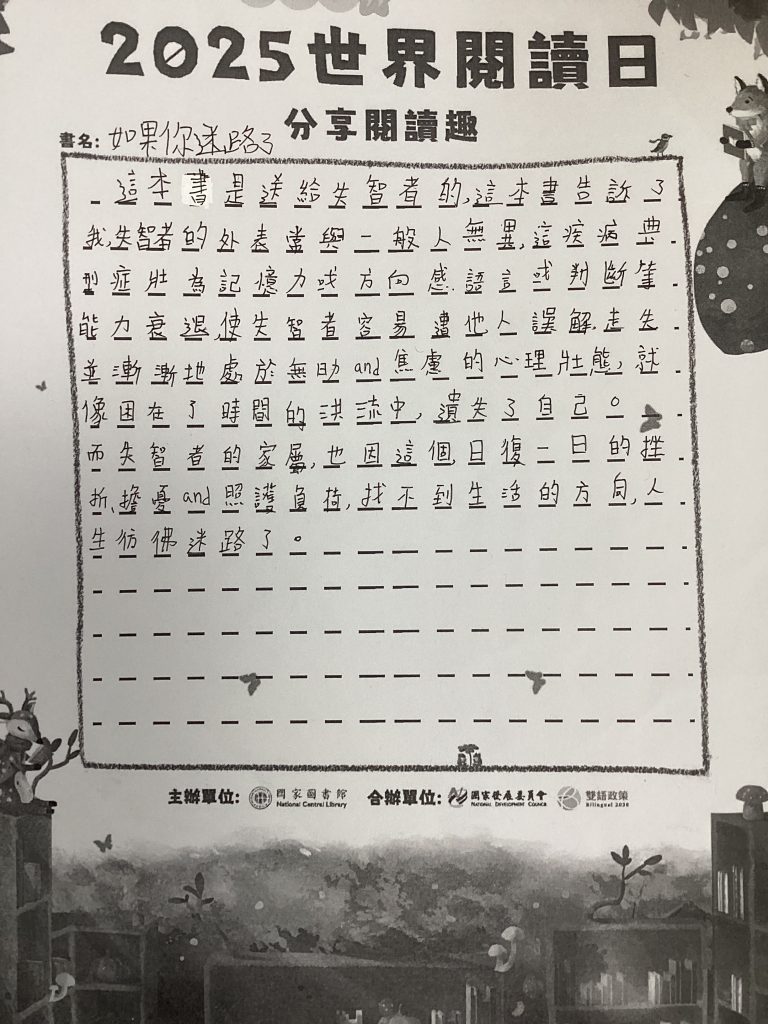 2025世界閱讀日
分享閱讀趣
書名: 如果你迷路了
這本書是送給失智者的,這本書告訴了
我,失智者的外表當與一般人無異,這疾病典
型症壯為記憶力或方向感.語言或判斷等
能力衰退,使失智者容易遭他人誤解.走失
並漸漸地處於無助and焦慮的心理壯態,就
像困在了時間的洪流中,遺失了自己。
而失智者的家屬,也因這個日復一日的挫
折、擔憂and照護負荷,找不到生活的方向,人
生彷彿迷路了。
主辦單位: 國家圖書館 National Central Library 合辦單位: 國家發展委員會 NATIONAL DEVELOPMENT COUNCIL 雙語政策 Bilingual 2030